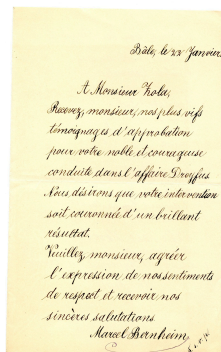 Bâle, le 22 Janvier.
A Monsieur Zola,
Recevez, monsieur, nos plus vifs
témoignages d'approbation
pour votre noble et courageuse
conduite dans l'affaire Dreyfus.
Nous désirons que votre intervention
soit couronnée d'un brillant
résultat.
Veuillez, monsieur, agréer
l'expression de nos sentiments
de respect et recevoir nos
sincères salutations
Marcel Bernheim